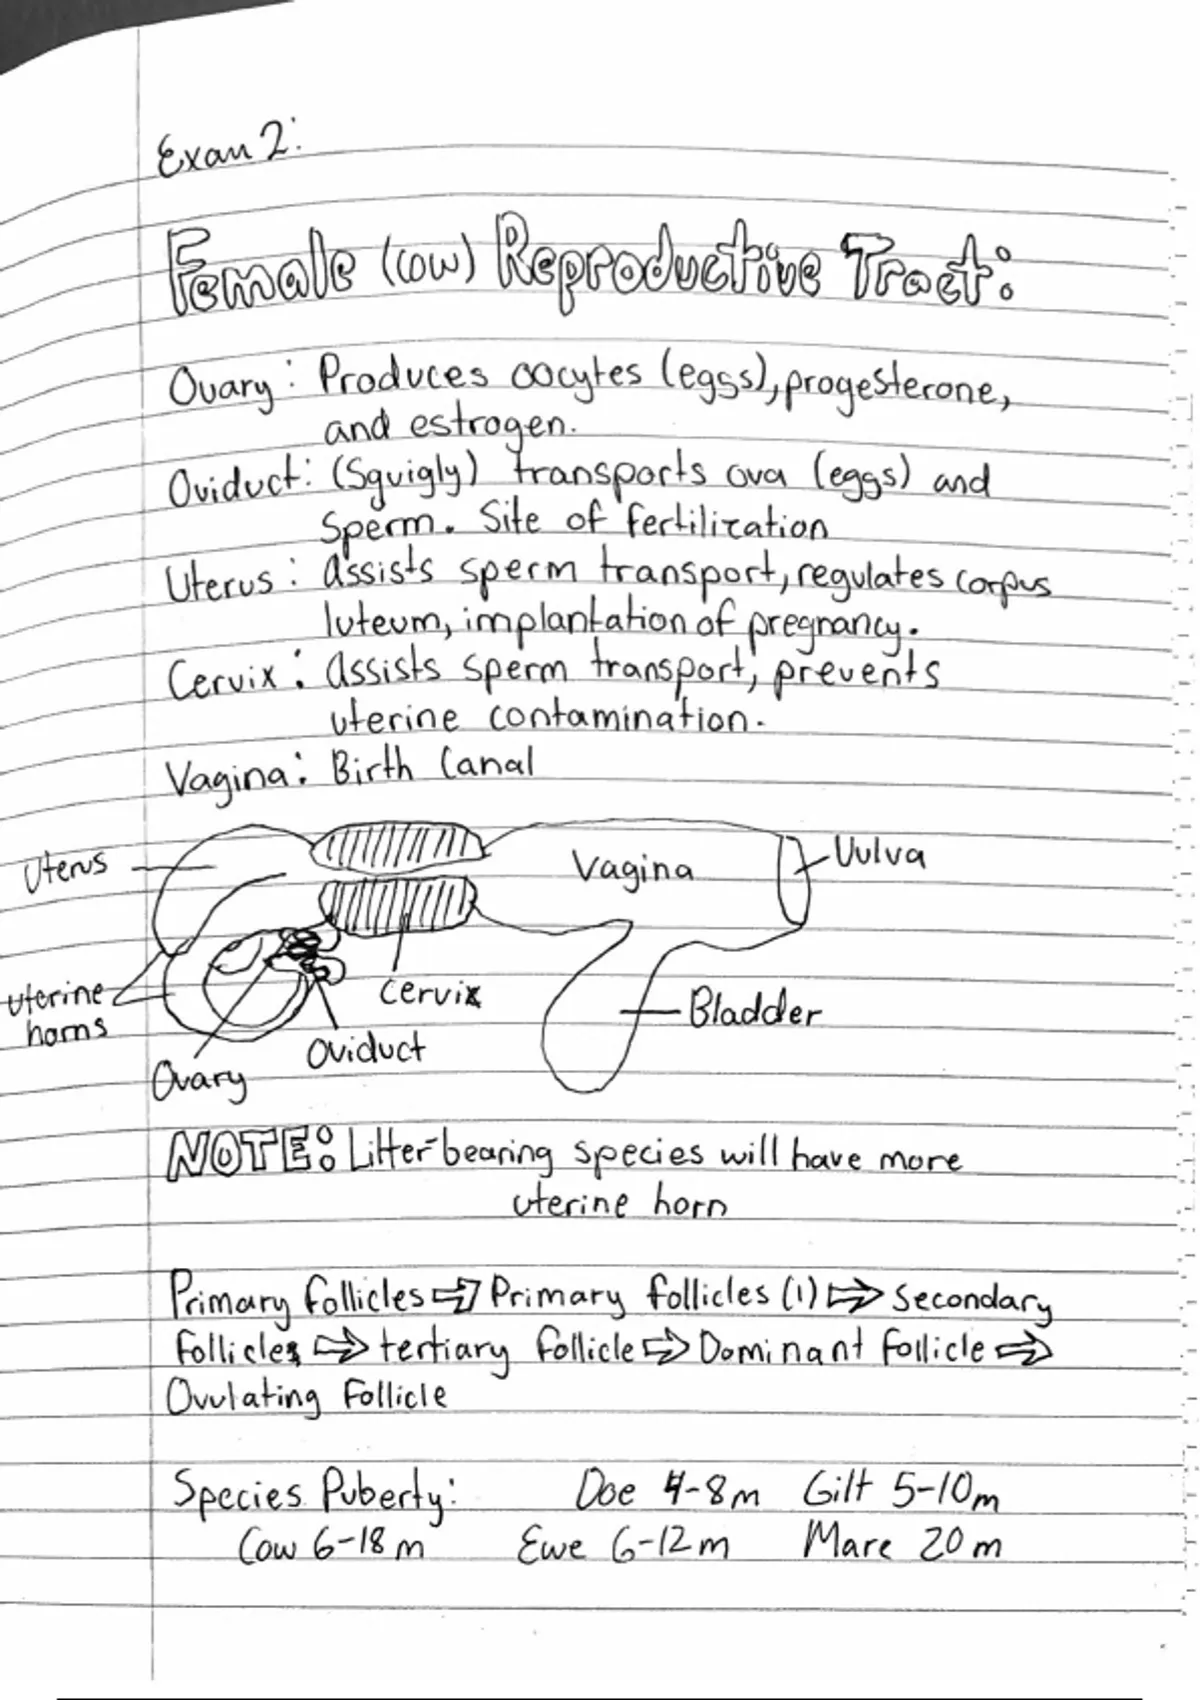 Exam 2:
Female (cow) Reproductive Tract:
Ovary: Produces oocytes (eggs), progesterone,
and estrogen.
Oviduct: (Squigly) transports ova (eggs) and
sperm. Site of fertilization
Uterus: assists sperm transport, regulates corpus
luteum, implantation of pregnancy.
Cervix: assists sperm transport, prevents
uterine contamination.
Vagina: Birth Canal
Uterus
Vagina
Vulva
uterine
horns
cervix
Bladder
Oviduct
Ovary
NOTE: Litter-bearing species will have more
uterine horn
Primary follicles ⇒ Primary follicles (1) ⇒ Secondary
follicles ⇒ tertiary follicle ⇒ Dominant follicle ⇒
Ovulating Follicle
Species Puberty: Doe 4-8m Gilt 5-10m
Cow 6-18m Ewe 6-12m Mare 20m